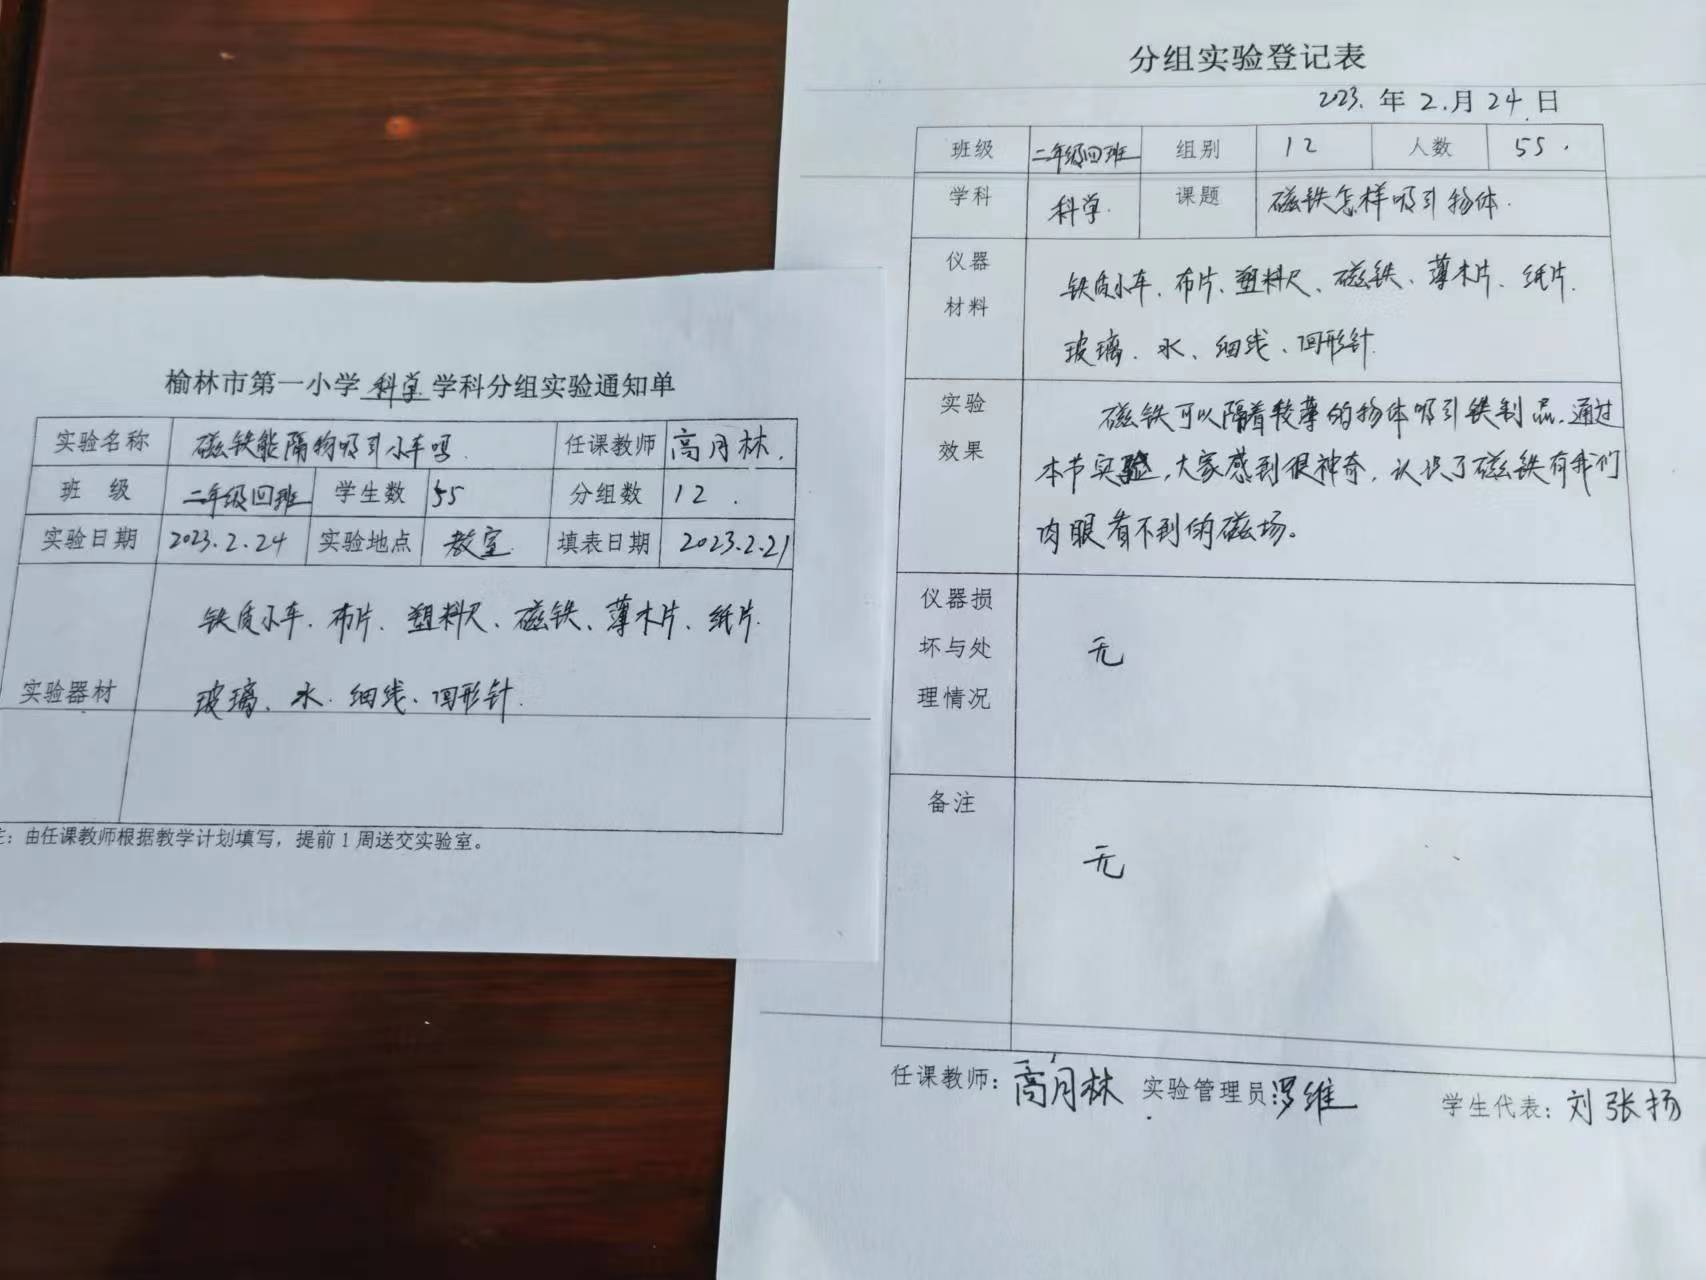 榆林市第一小学 科学 学科分组实验通知单
实验名称 磁铁能隔物吸引小车吗 任课教师 高月林.
班 级 二年级四班 学生数 55 分组数 12.
实验日期 2023.2.24 实验地点 教室 填表日期 2023.2.21
铁质小车、布片、塑料尺、磁铁、薄木片、纸片.
实验器材 玻璃、水、细线、回形针.
注：由任课教师根据教学计划填写，提前1周送交实验室。
分组实验登记表
2023.年2.月24.日
班级 二年级四班 组别 12 人数 55.
学科 科学. 课题 磁铁怎样吸引物体.
仪器 铁质小车、布片、塑料尺、磁铁、薄木片、纸片.
材料 玻璃、水、细线、回形针.
实验 磁铁可以隔着较薄的物体吸引铁制品.通过
效果 本节实验,大家感到很神奇,认识了磁铁有我们
肉眼看不到的磁场。
仪器损
坏与处 无
理情况
备注
无
任课教师：高月林 实验管理员 罗维 学生代表：刘张扬